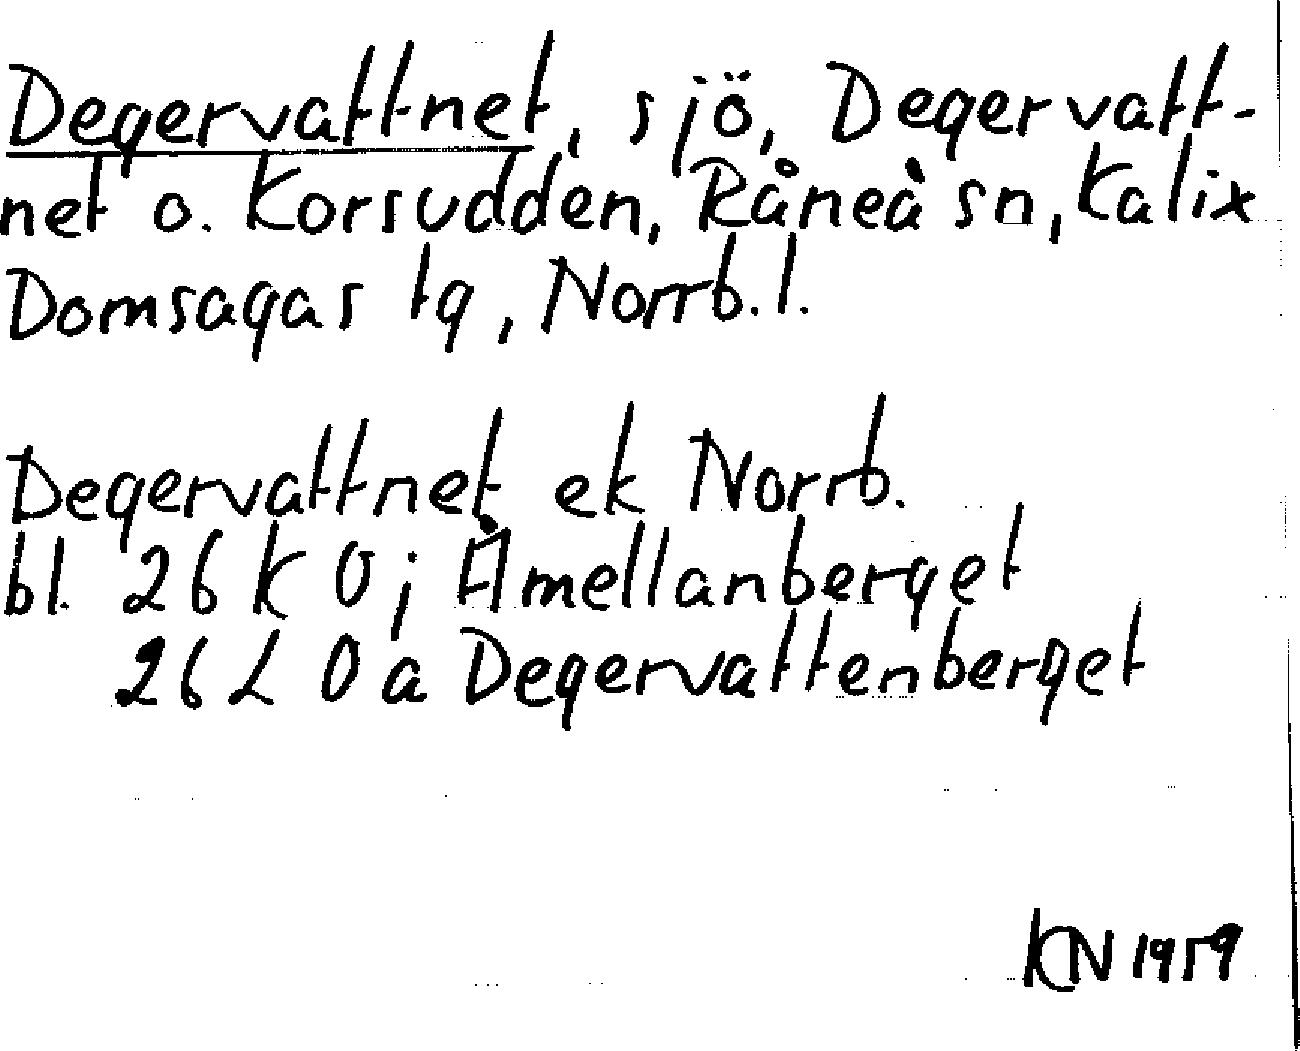 Degervattnet, sjö, Degervatt-
net o. Korsudden, Råneå sn, Kalix
Domsagas tg, Norrb. l.
Degervattnet ek Norrb.
bl. 26 K 0 j Åmellanberget
26 L 0 a Degervattenberget
KN 1959